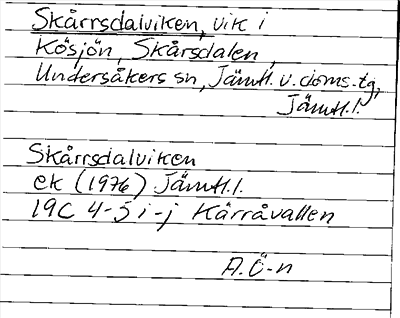 Skårrsdalviken, vik i
Kösjön, Skårsdalen,
Undersåkers sn, Jämtl. v. doms. tg,
Jämtl. l.
Skårrsdalviken
ek (1976) Jämtl. l.
19C 4-5 i-j Kärråvallen
A. Ö-n